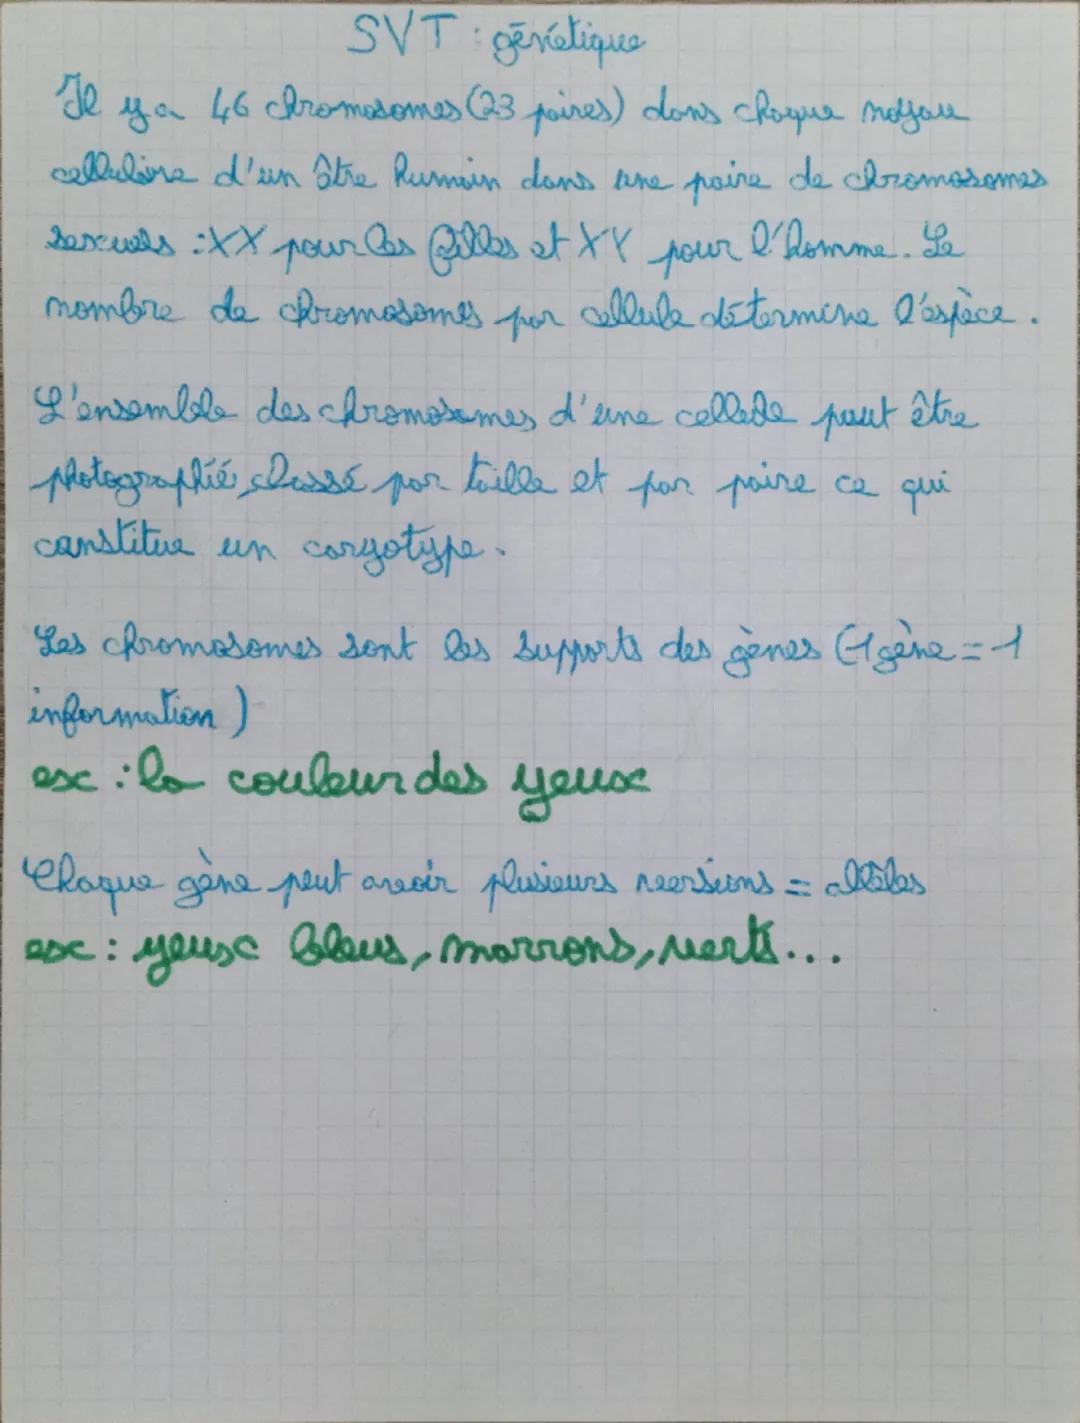 SVT : génétique
Il y a 46 chromosomes (23 paires) dans chaque noyau
cellulaire d'un être humain dans une paire de chromosomes
sexuels : XX pour les filles et XY pour l'homme. Le
nombre de chromosomes par cellule détermine l'espèce.
L'ensemble des chromosomes d'une cellule peut être
photographié, classé par taille et par paire ce qui
constitue un caryotype.
Les chromosomes sont les supports des gènes (1 gène = 1
information)
ex : la couleur des yeux
Chaque gène peut avoir plusieurs versions = allèles
ex : yeux bleus, marrons, verts...